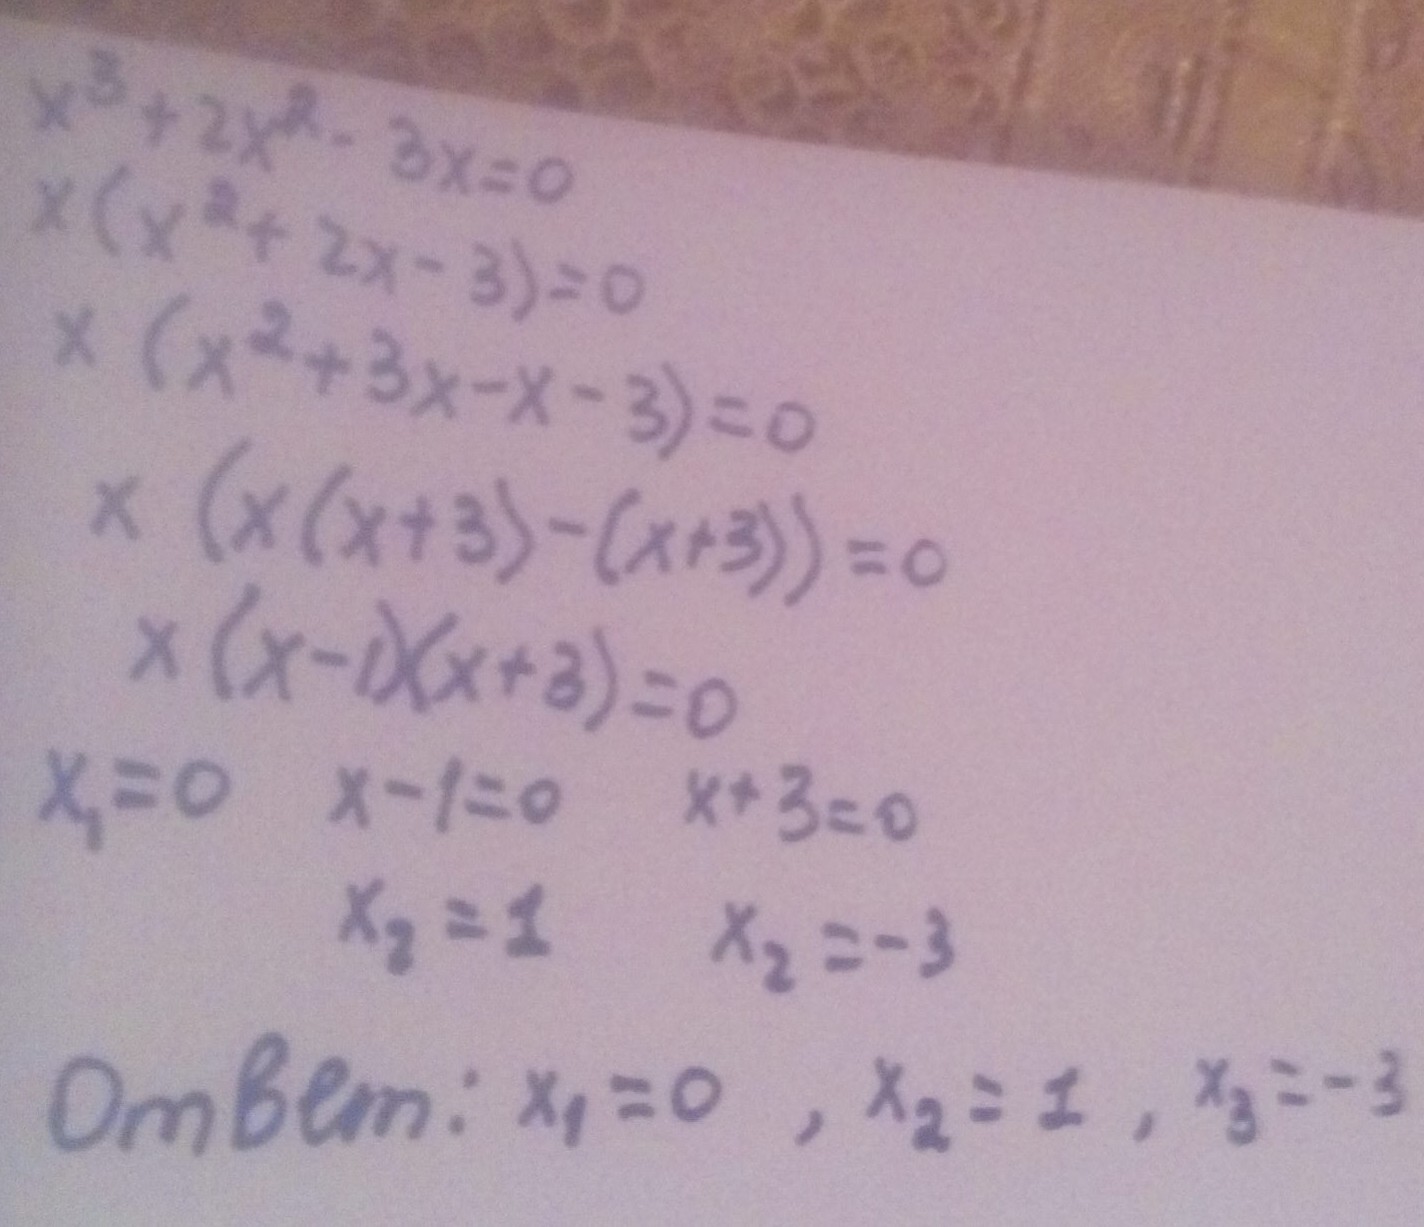 x³ + 2x² - 3x = 0
x (x² + 2x - 3) = 0
x (x² + 3x - x - 3) = 0
x (x (x + 3) - (x + 3)) = 0
x (x - 1)(x + 3) = 0
x₁ = 0 x - 1 = 0 x + 3 = 0
x₂ = 1 x₂ = -3
Ответ: x₁ = 0 , x₂ = 1 , x₃ = -3